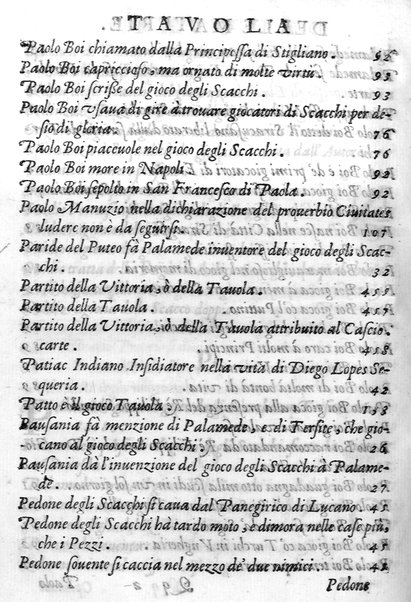 Paolo Boi chiamato dalla Principessa di Stigliano. 92
Paolo Boi capriccioso, ma ornato di molte virtù. 93
Paolo Boi scrisse del gioco degli Scacchi. 93
Paolo Boi vsaua di gire à trouare giocatori di Scacchi per de-
sio di gloria. 76
Paolo Boi piaceuole nel gioco degli Scacchi. 76
Paolo Boi more in Napoli. 92
Paolo Boi sepolto in San Francesco di Paola. 92
Paolo Manuzio nella dichiarazione del prouerbio Ciuitates
ludere non è da seguirsi. 107
Paride del Puteo fà Palamede inuentore del gioco degli Scac-
chi. 32
Partito della Vittoria, ò della Tauola. 415
Partito della Tauola. 415
Partito della Vittoria, ò della Tauola attribuito al Cascio
carte. 418
Patiac Indiano Insidiatore nella vita di Diego Lopes Se-
queria. 412
Patto è il gioco Tauola. 153
Pausania fà menzione di Palamede, e di Tersite, che gio-
cano al gioco degli Scacchi. 27
Pausania dà l'inuenzione del gioco degli Scacchi à Palame-
de. 27
Pedone degli Scacchi si caua dal Panegirico di Lucano. 45
Pedone degli Scacchi hà tardo moto, e dimora nelle case più,
che i Pezzi. 42
Pedone souente si caccia nel mezzo de' due nimici. 42
Pedone